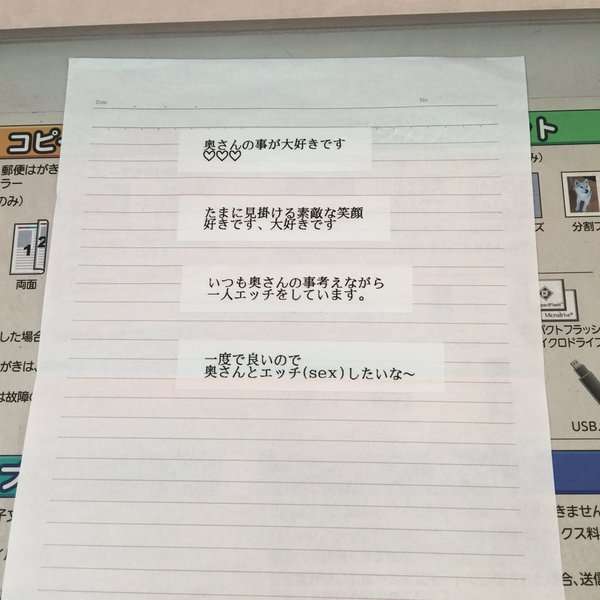 Date
No
奥さんの事が大好きです
♡♡♡
たまに見掛ける素敵な笑顔
好きです、大好きです
いつも奥さんの事考えながら
一人エッチをしています。
一度で良いので
奥さんとエッチ(sex)したいな～
コピ
郵便はがき
ラー
のみ)
1
2
両面
した場合
がきは、
は故障の
ト
み)
ズ
分割フ
パクトフラッシ
イクロドライブ
USB
きません
クス料
合、送信